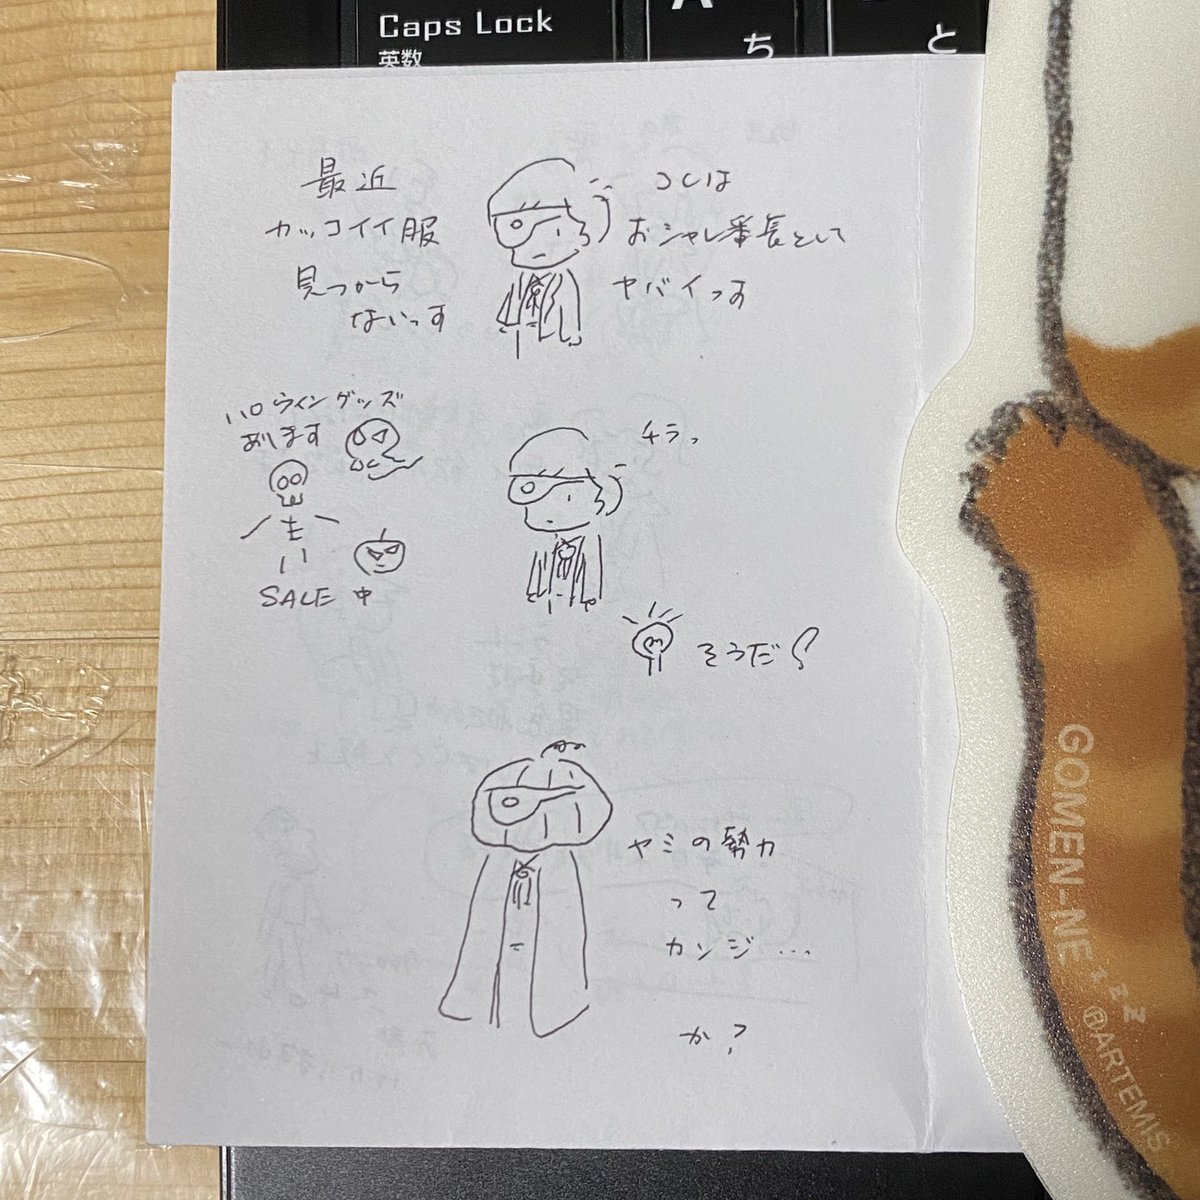 Caps Lock
英数
A
ち
と
最近
カッコイイ服
見つから
ないっす
コレは
おシャレ番長として
ヤバイっす
ハロウィングッズ
あります
SALE 中
チラッ
そうだ!
ヤミの勢力
って
カンジ…
か?
GOMEN-NE
zzz
@ARTEMIS